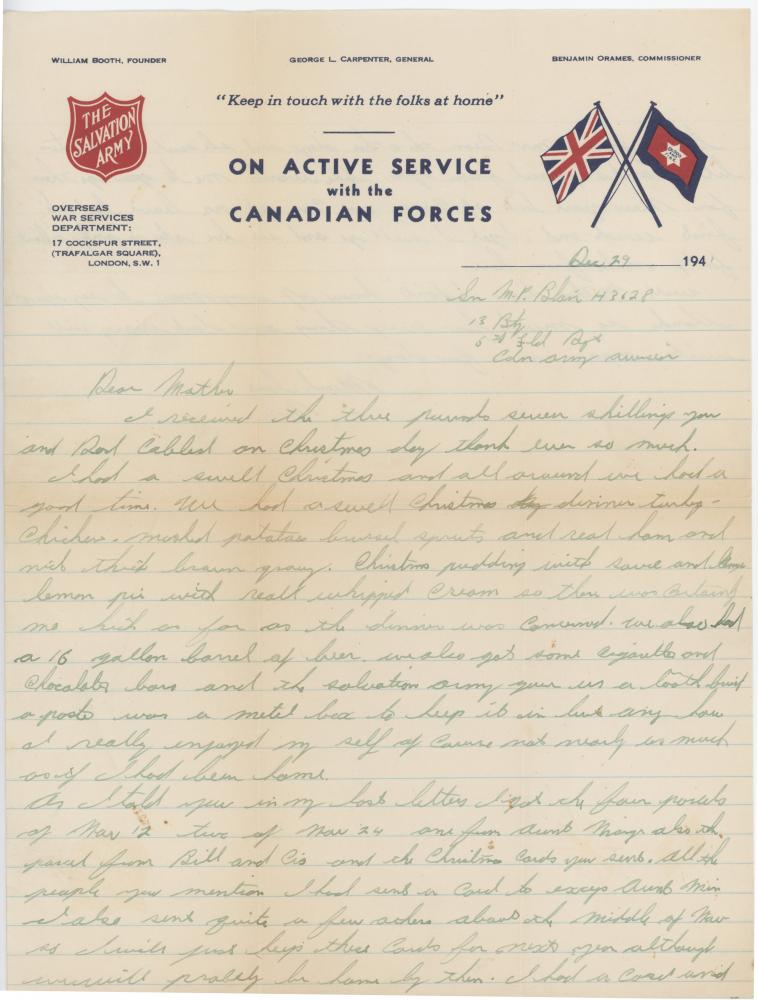 WILLIAM BOOTH, FOUNDER
GEORGE L. CARPENTER, GENERAL
BENJAMIN ORAMES, COMMISSIONER
"Keep in touch with the folks at home"
THE
SALVATION
ARMY
ON ACTIVE SERVICE
with the
CANADIAN FORCES
OVERSEAS
WAR SERVICES
DEPARTMENT:
17 COCKSPUR STREET,
(TRAFALGAR SQUARE),
LONDON, S.W. 1
Dec 29 194
Gnr M.P. Blair H3628
13 Bty
6th Field Rgt
Cdn army
Dear Mother
I received the three pounds seven shillings you
and Dad Cabled on Christmas day thank ever so much.
I had a swell Christmas and all around we had a
good time. We had a swell Christmas dinner turkey-
Chicken-mashed potatoes brussel sprouts and real ham and
nice thick brown gravy. Christmas pudding with sauce and
lemon pie with reall whipped Cream so there was
me kick as far as the dinner was Concerned. we also had
a 16 gallon barrel of beer. we also got some cigarettes and
Chocolate bars and the salvation army gave us a tooth brush
a paste was a metel box to keep it in but any how
I really enjoyed my self of Course not nearly as much
as if I had been home.
As I told you in my last letters I got the four parcels
of Nov 12 two of Nov 24 one from Aunt Marge also the
parcel from Bill and Cis and the Christmas Cards you sent. All the
people you mention I had sent a Card to excep Aunt Min
I also sent quite a few others about the middle of Nov
so I will just keep these Cards for next year although
we will probley be home by then. I had a Card and